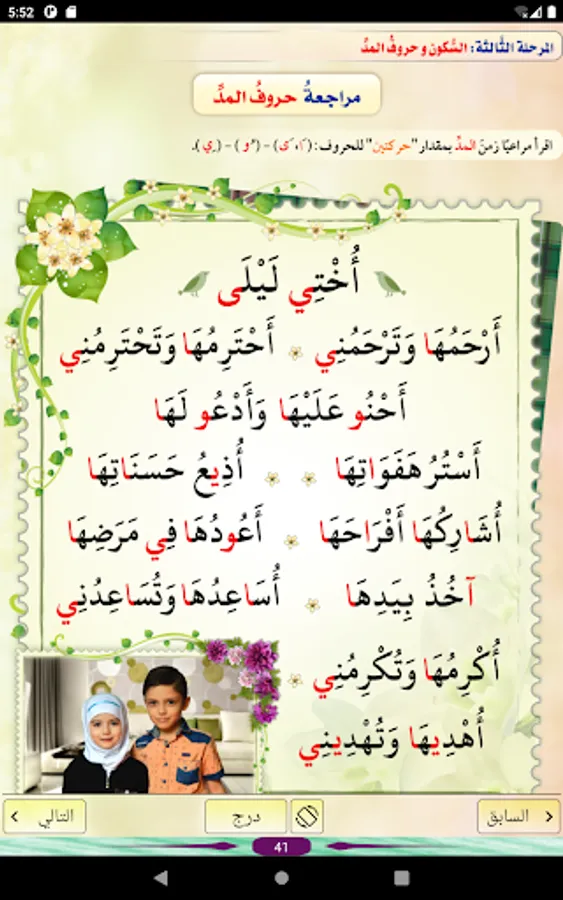 5:52
المرحلة الثَّالثة: السُّكون و حروفُ المدِّ
مراجعةُ حروفُ المدِّ
اقرأ مراعيًا زمنَ المدِّ بمقدار "حركتين" للحروف: (ـَا، ـَى) – (ـُو) – (ـِي).
أُخْتِي لَيْلَى
أَرْحَمُهَا وَتَرْحَمُنِي أَحْتَرِمُهَا وَتَحْتَرِمُنِي
أَحْنُو عَلَيْهَا وَأَدْعُو لَهَا
أَسْتُرُ هَفَوَاتِهَا أُذِيعُ حَسَنَاتِهَا
أُشَارِكُهَا أَفْرَاحَهَا أَعُودُهَا فِي مَرَضِهَا
آخُذُ بِيَدِهَا أُسَاعِدُهَا وَتُسَاعِدُنِي
أُكْرِمُهَا وَتُكْرِمُنِي
أُهْدِيهَا وَتُهْدِينِي
السابق درج التالي
41